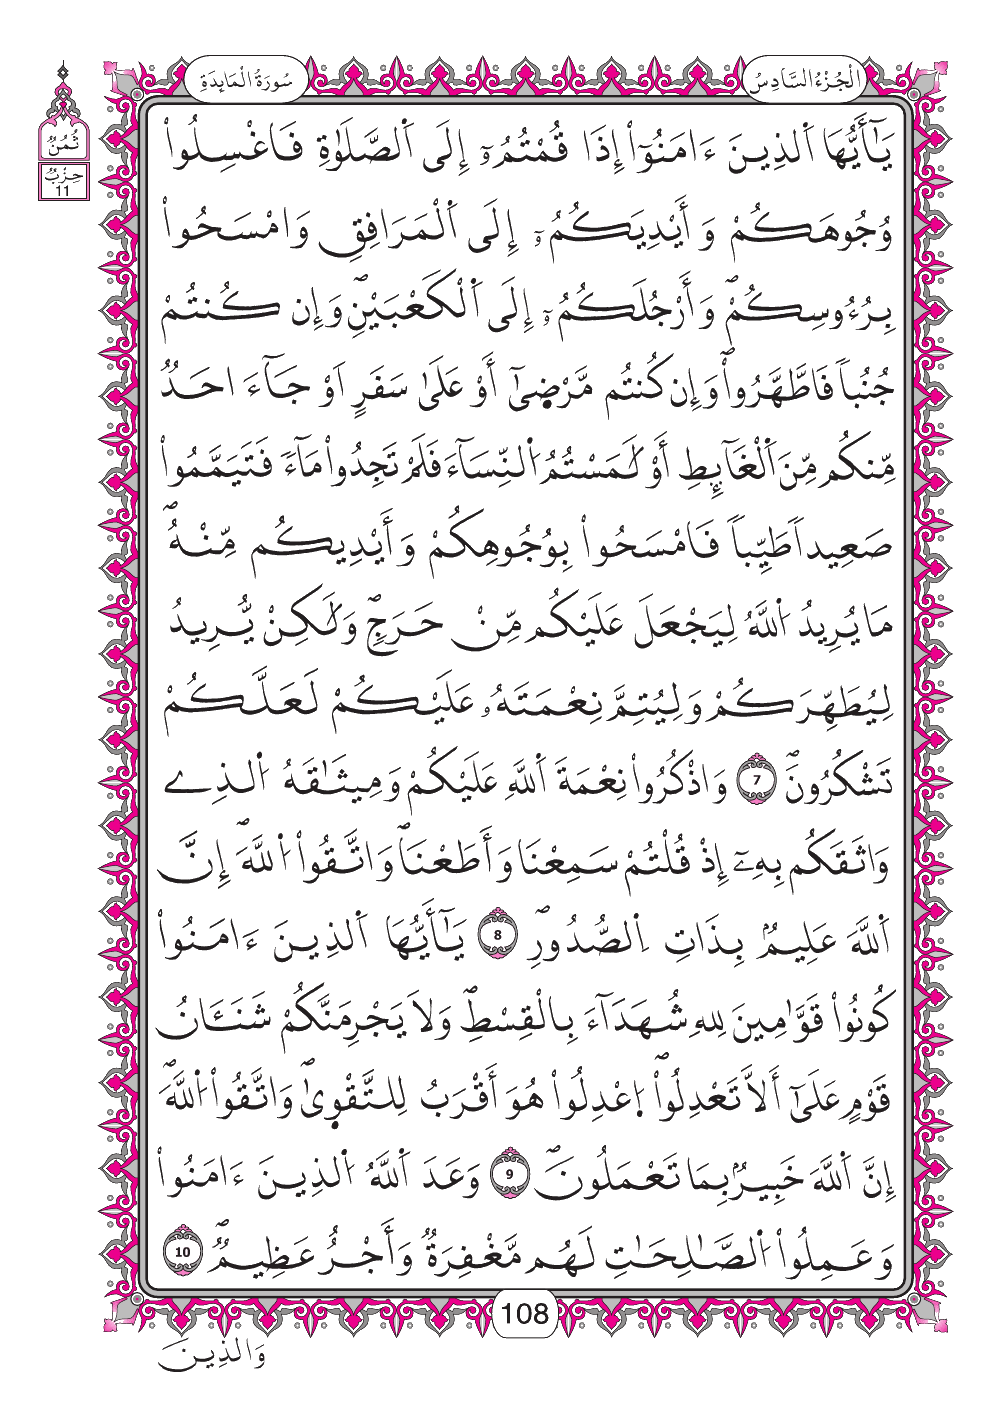 سُورَةُ الْمَائِدَةِ
الْجُزْءُ السَّادِسُ
ثُمُنٌ
حِزْبٌ
11
يَـٰٓأَيُّهَا اَ۬لذِينَ ءَامَنُوٓاْ إِذَا قُمْتُمُۥٓ إِلَى اَ۬لصَّلَوٰةِ فَاغْسِلُواْ
وُجُوهَكُمْ وَأَيْدِيَكُمُۥٓ إِلَى اَ۬لْمَرَافِقِ وَامْسَحُواْ
بِرُءُوسِكُمْۖ وَأَرْجُلَكُمُۥٓ إِلَى اَ۬لْكَعْبَيْنِۖ وَإِن كُنتُمْ
جُنُباٗ فَاطَّهَّرُواْۖ وَإِن كُنتُم مَّرْضَىٰٓ أَوْ عَلَىٰ سَفَرٍ اَوْ جَآءَ احَدٌ
مِّنكُم مِّنَ اَ۬لْغَآئِطِ أَوْ لَـٰمَسْتُمُ اُ۬لنِّسَآءَ فَلَمْ تَجِدُواْ مَآءٗ فَتَيَمَّمُواْ
صَعِيداٗ طَيِّباٗ فَامْسَحُواْ بِوُجُوهِكُمْ وَأَيْدِيكُم مِّنْهُۖ
مَا يُرِيدُ اُ۬للَّهُ لِيَجْعَلَ عَلَيْكُم مِّنْ حَرَجٖۖ وَلَـٰكِنْ يُّرِيدُ
لِيُطَهِّرَكُمْ وَلِيُتِمَّ نِعْمَتَهُۥ عَلَيْكُمْ لَعَلَّكُمْ
تَشْكُرُونَۖ 7 وَاذْكُرُواْ نِعْمَةَ اَ۬للَّهِ عَلَيْكُمْ وَمِيثَـٰقَهُ اُ۬لذِے
وَاثَقَكُم بِهِۦٓ إِذْ قُلْتُمْ سَمِعْنَا وَأَطَعْنَاۖ وَاتَّقُواْ اُ۬للَّهَۖ إِنَّ
اَ۬للَّهَ عَلِيمُۢ بِذَاتِ اِ۬لصُّدُورِۖ 8 يَـٰٓأَيُّهَا اَ۬لذِينَ ءَامَنُواْ
كُونُواْ قَوَّٰمِينَ لِلهِ شُهَدَآءَ بِالْقِسْطِۖ وَلَا يَجْرِمَنَّكُمْ شَنَـَٔانُ
قَوْمٍ عَلَىٰٓ أَلَّا تَعْدِلُواْۖ اُ۪عْدِلُواْ هُوَ أَقْرَبُ لِلتَّقْوَىٰۖ وَاتَّقُواْ اُ۬للَّهَۖ
إِنَّ اَ۬للَّهَ خَبِيرُۢ بِمَا تَعْمَلُونَۖ 9 وَعَدَ اَ۬للَّهُ اُ۬لذِينَ ءَامَنُواْ
وَعَمِلُواْ اُ۬لصَّـٰلِحَـٰتِ لَهُم مَّغْفِرَةٞ وَأَجْرٌ عَظِيمٞۖ 10
108
وَالذِينَ